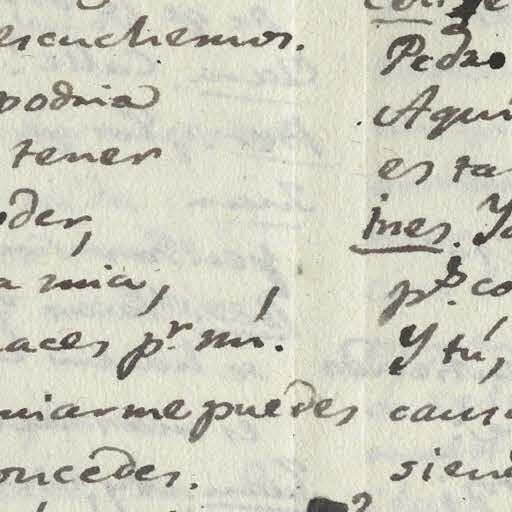 escuchemos.
podria
tener
oder,
a mia,
aces pr. mí.
niarme puedes
oncedes.
Pedro
Aquí
es ta
Ines. Yo
po. co
Y tú,
causa
siend